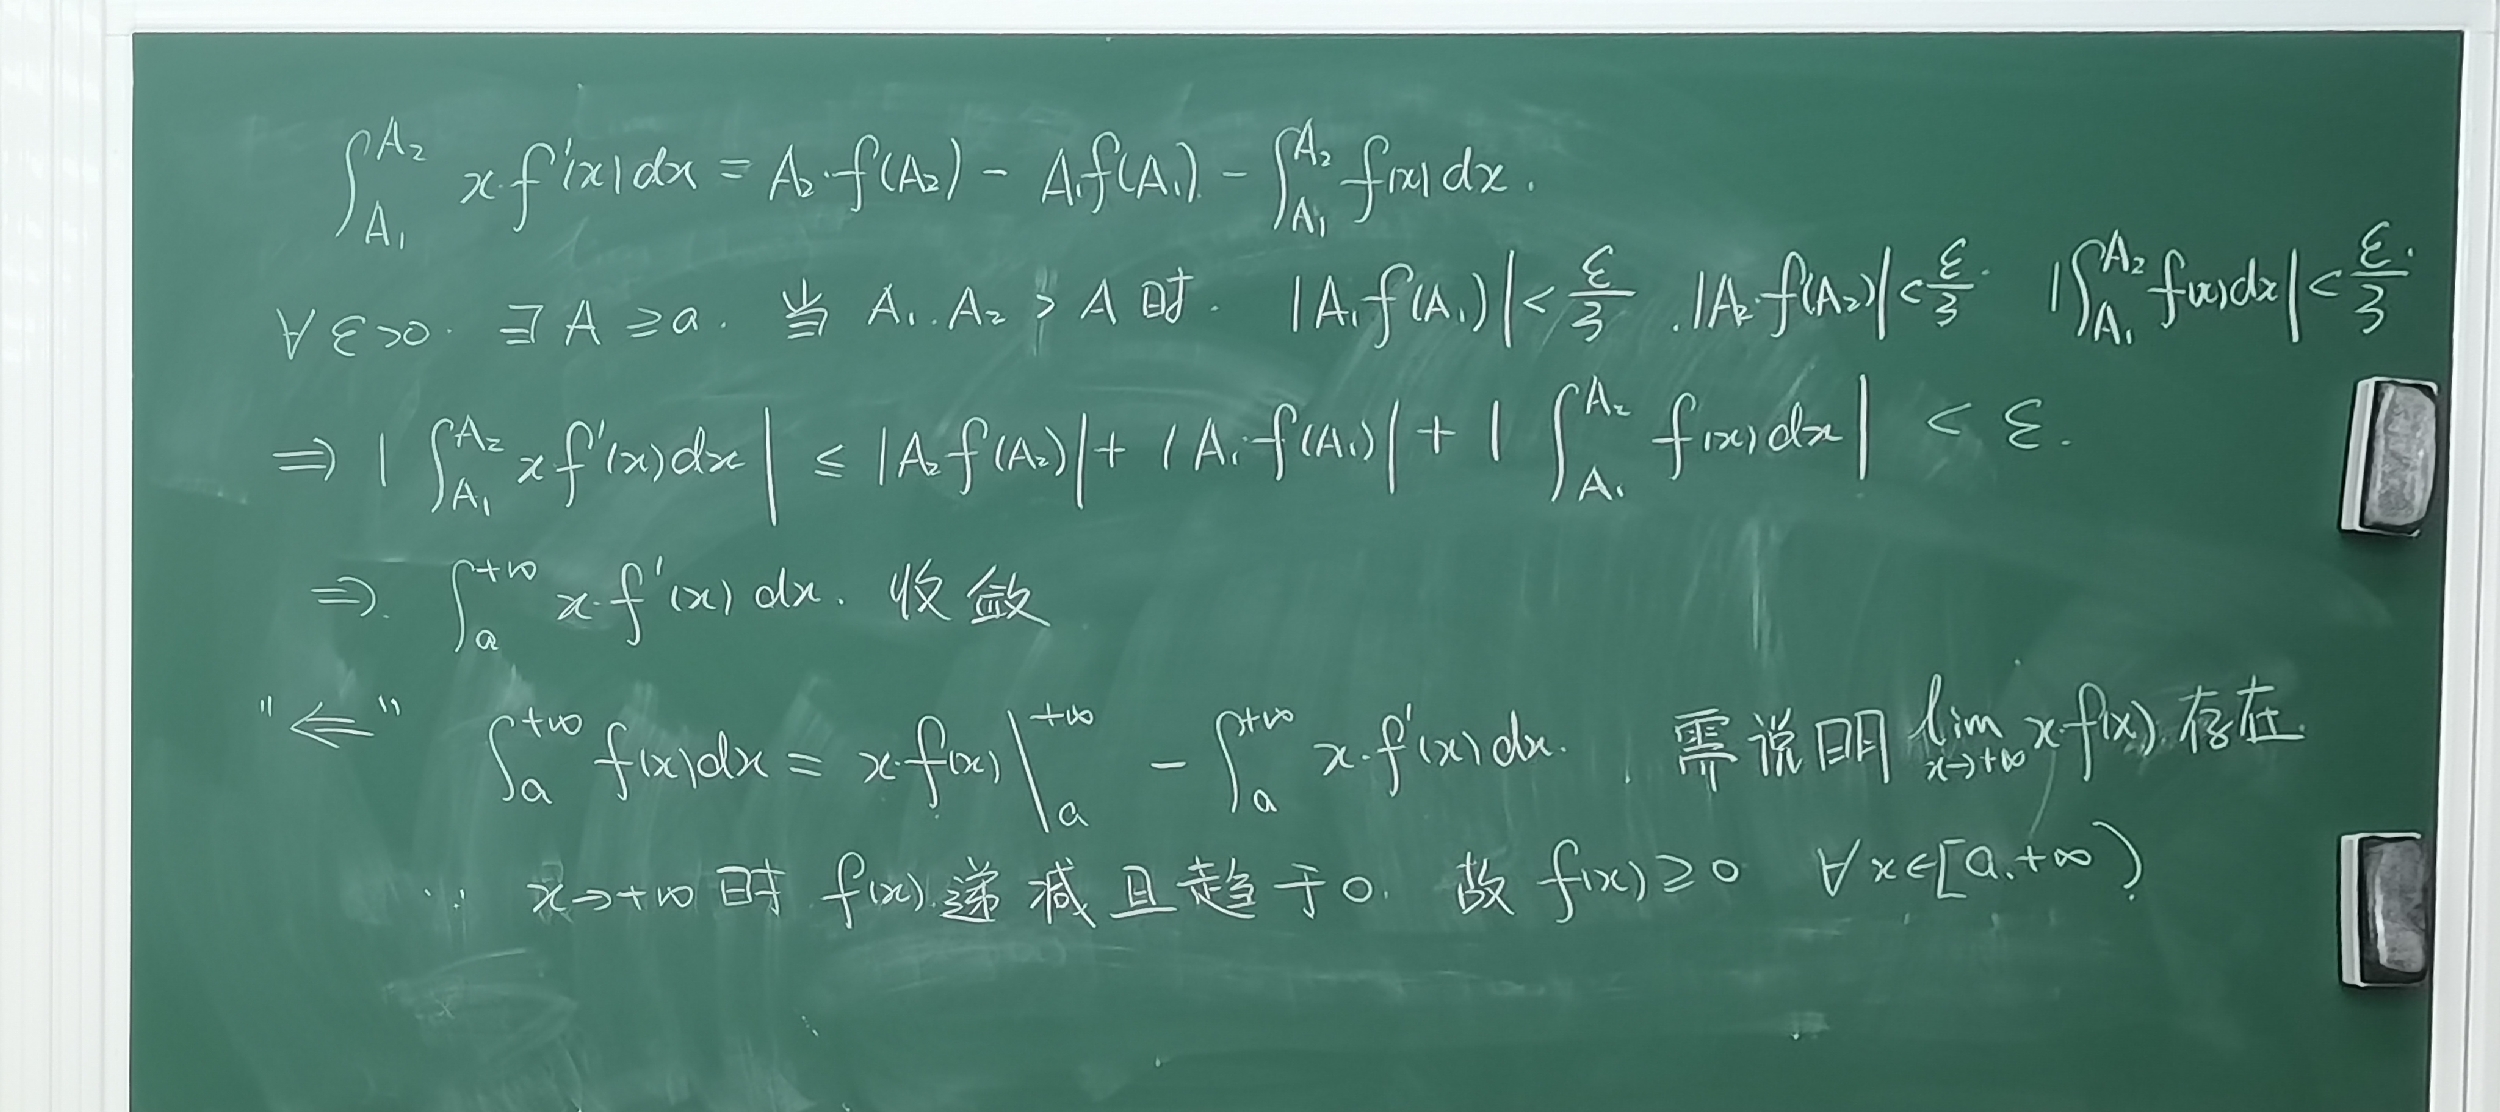 ∫_{A₁}^{A₂} x·f'(x)dx = A₂·f(A₂) - A₁f(A₁) - ∫_{A₁}^{A₂} f(x)dx.
∀ε>0. ∃A≥a. 当 A₁.A₂ > A 时. |A₁f(A₁)|<ε/3 .|A₂·f(A₂)|<ε/3. |∫_{A₁}^{A₂} f(x)dx|<ε/3.
⇒ |∫_{A₁}^{A₂} xf'(x)dx| ≤ |A₂f(A₂)| + |A₁·f(A₁)| + |∫_{A₁}^{A₂} f(x)dx| < ε.
⇒. ∫_a^{+∞} x·f'(x)dx. 收敛
"⇐" ∫_a^{+∞} f(x)dx = x·f(x)|_a^{+∞} - ∫_a^{+∞} x·f'(x)dx. 需说明 lim_{x→+∞} x·f(x) 存在.
∵ x→+∞ 时 f(x) 递减且趋于0. 故 f(x)≥0 ∀x∈[a,+∞)